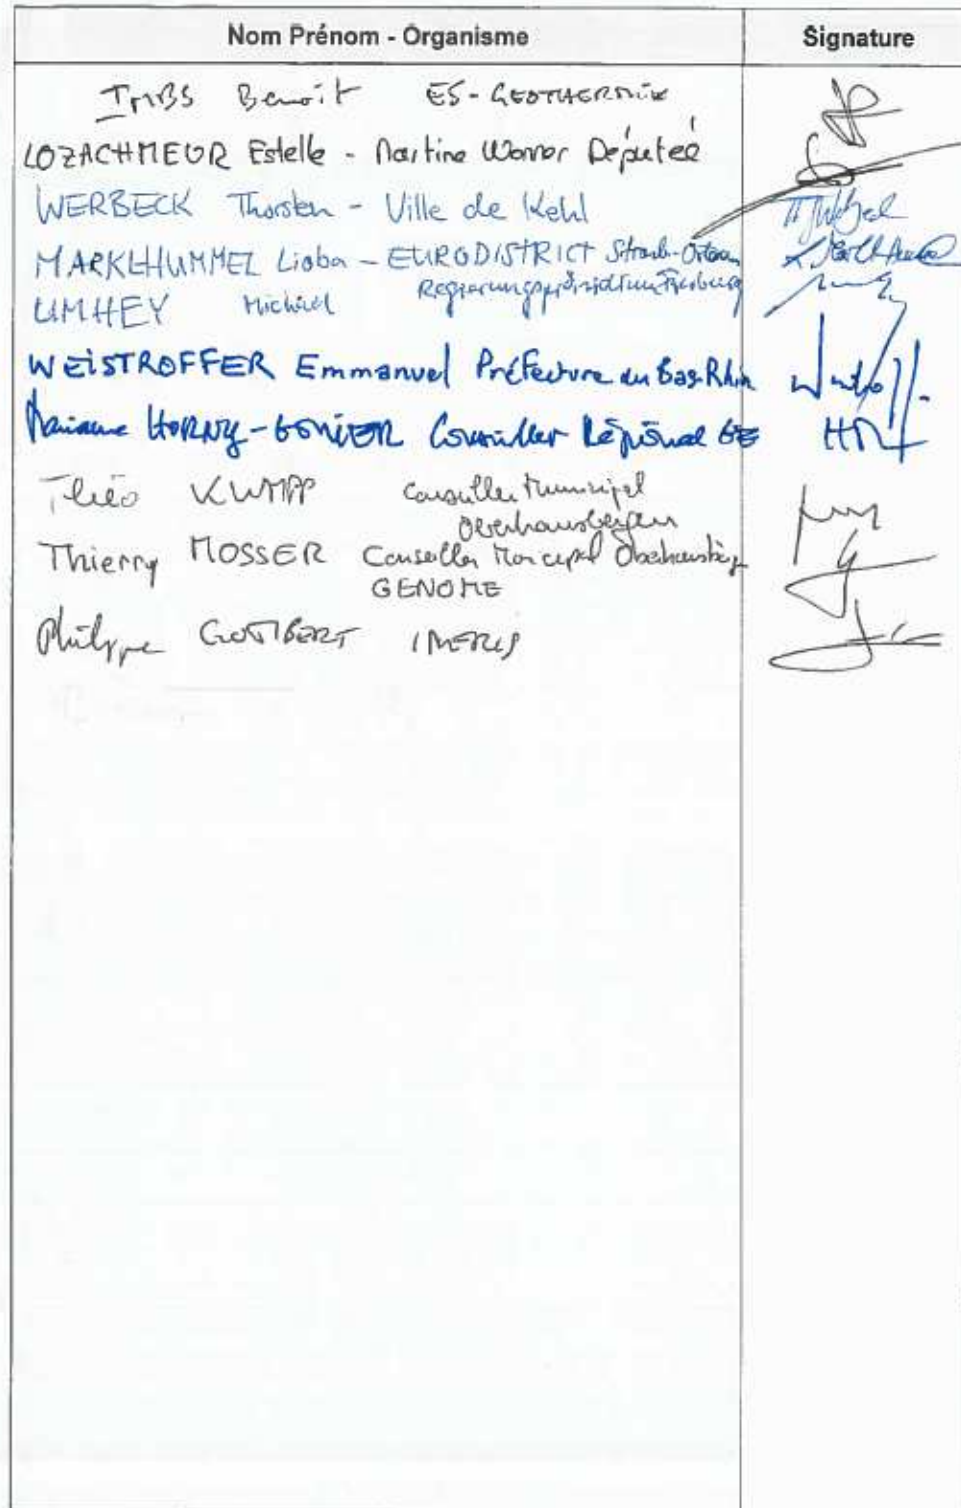 Nom Prénom - Organisme Signature
IMBS Benoît ES-GEOTHERMIE
LOZACHMEUR Estelle - Martine Wonner Députée
WERBECK Thorsten - Ville de Kehl
MARKLHUMMEL Lioba - EURODISTRICT Strasb-Ortenau
UMHEY Michael Regierungspräsidium Freiburg
WEISTROFFER Emmanuel Préfecture du Bas-Rhin
Mariane HORNY-GONIER Conseiller Régional GE
Théo KLUMPP Conseiller Municipal
Oberhausbergen
Thierry MOSSER Conseiller Municipal Oberhausberg
GENOME
Philippe GOMBERT INERIS